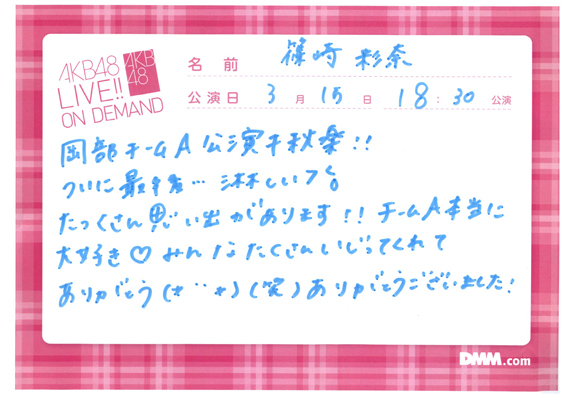 AKB48
LIVE!!
ON DEMAND
AKB
48
名前 篠崎 彩奈
公演日 3月15日 18:30公演
岡部チームA公演千秋楽!!
ついに最後… 淋しいつら
たっくさん思い出があります!! チームA本当に
大好き♡ みんなたくさんいじってくれて
ありがとう(+¨+)(笑)ありがとうございました!
DMM.com